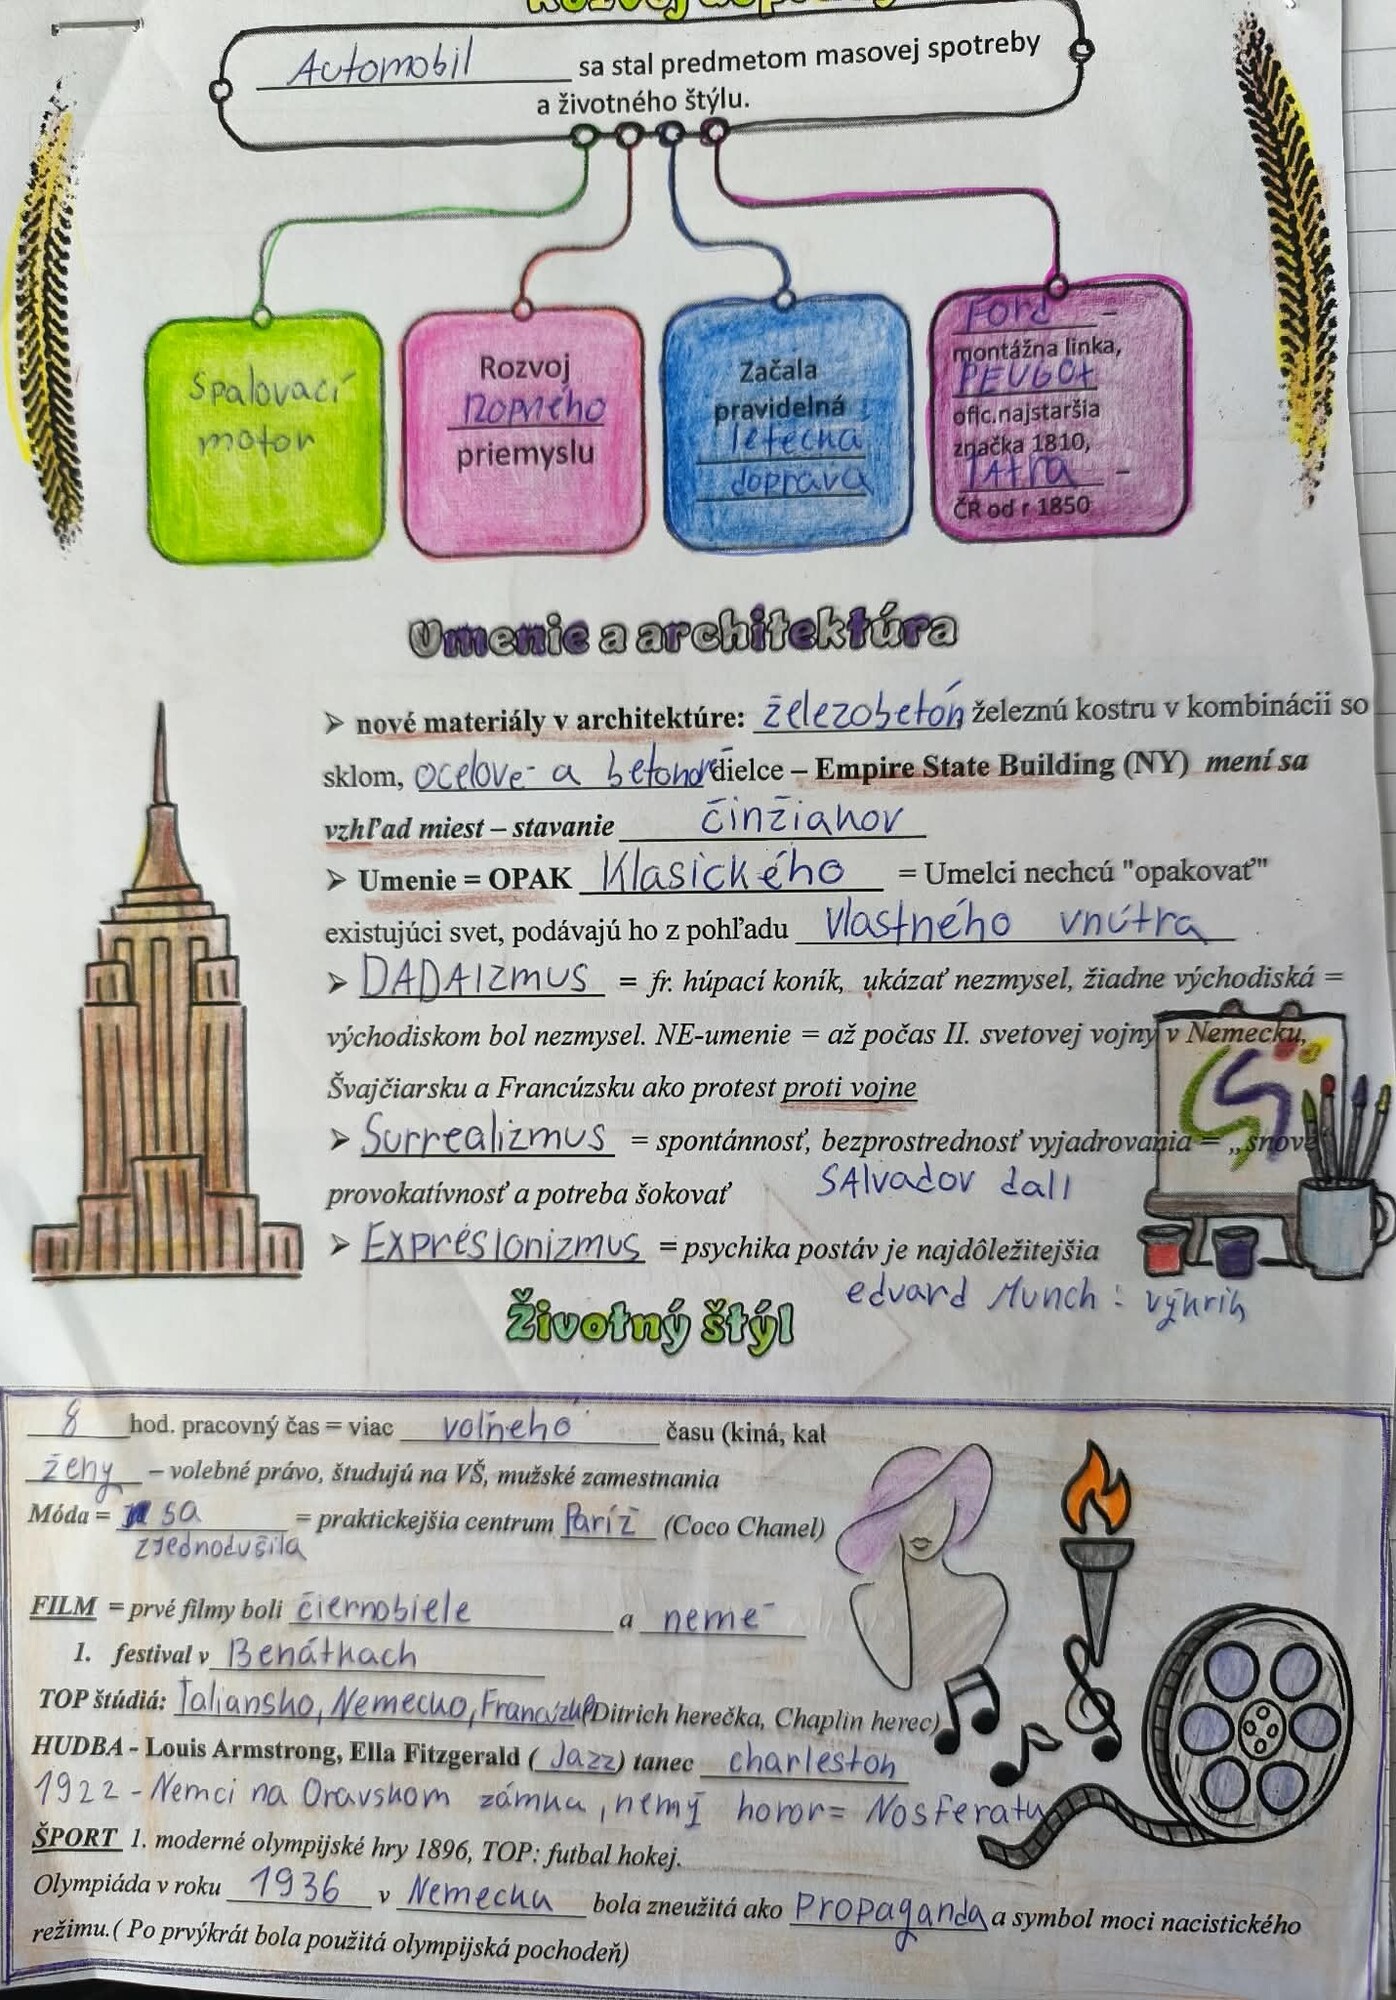 Automobil sa stal predmetom masovej spotreby
a životného štýlu.
Spalovací
motor
Rozvoj
ropného
priemyslu
Začala
pravidelná
letecká
doprava
Ford –
montážna linka,
PEUGOt
ofic.najstaršia
značka 1810,
TAtra –
ČR od r 1850
Umenie a architektúra
➢ nové materiály v architektúre: železobetón železnú kostru v kombinácii so
sklom, ocelové a betonové dielce – Empire State Building (NY) mení sa
vzhľad miest – stavanie činžiakov
➢ Umenie = OPAK Klasického = Umelci nechcú "opakovať"
existujúci svet, podávajú ho z pohľadu vlastného vnútra
➢ DADAIZMUS = fr. húpací koník, ukázať nezmysel, žiadne východiská =
východiskom bol nezmysel. NE-umenie = až počas II. svetovej vojny v Nemecku,
Švajčiarsku a Francúzsku ako protest proti vojne
➢ Surrealizmus = spontánnosť, bezprostrednosť vyjadrovania = „snové"
provokatívnosť a potreba šokovať SAlvador dalI
➢ Expresionizmus = psychika postáv je najdôležitejšia
edvard Munch : výkrik
Životný štýl
8 hod. pracovný čas = viac voľného času (kiná, kał
ženy – volebné právo, študujú na VŠ, mužské zamestnania
Móda = sa = praktickejšia centrum Paríž (Coco Chanel)
zjednodušila
FILM = prvé filmy boli čiernobiele a neme
1. festival v Benátkach
TOP štúdiá: Taliansko, Nemecko, Francúzsko (Ditrich herečka, Chaplin herec)
HUDBA - Louis Armstrong, Ella Fitzgerald ( Jazz ) tanec charleston
1922 - Nemci na Oravskom zámku, nemý horor = Nosferatu
ŠPORT 1. moderné olympijské hry 1896, TOP: futbal hokej.
Olympiáda v roku 1936 v Nemecku bola zneužitá ako Propaganda a symbol moci nacistického
režimu.( Po prvýkrát bola použitá olympijská pochodeň)